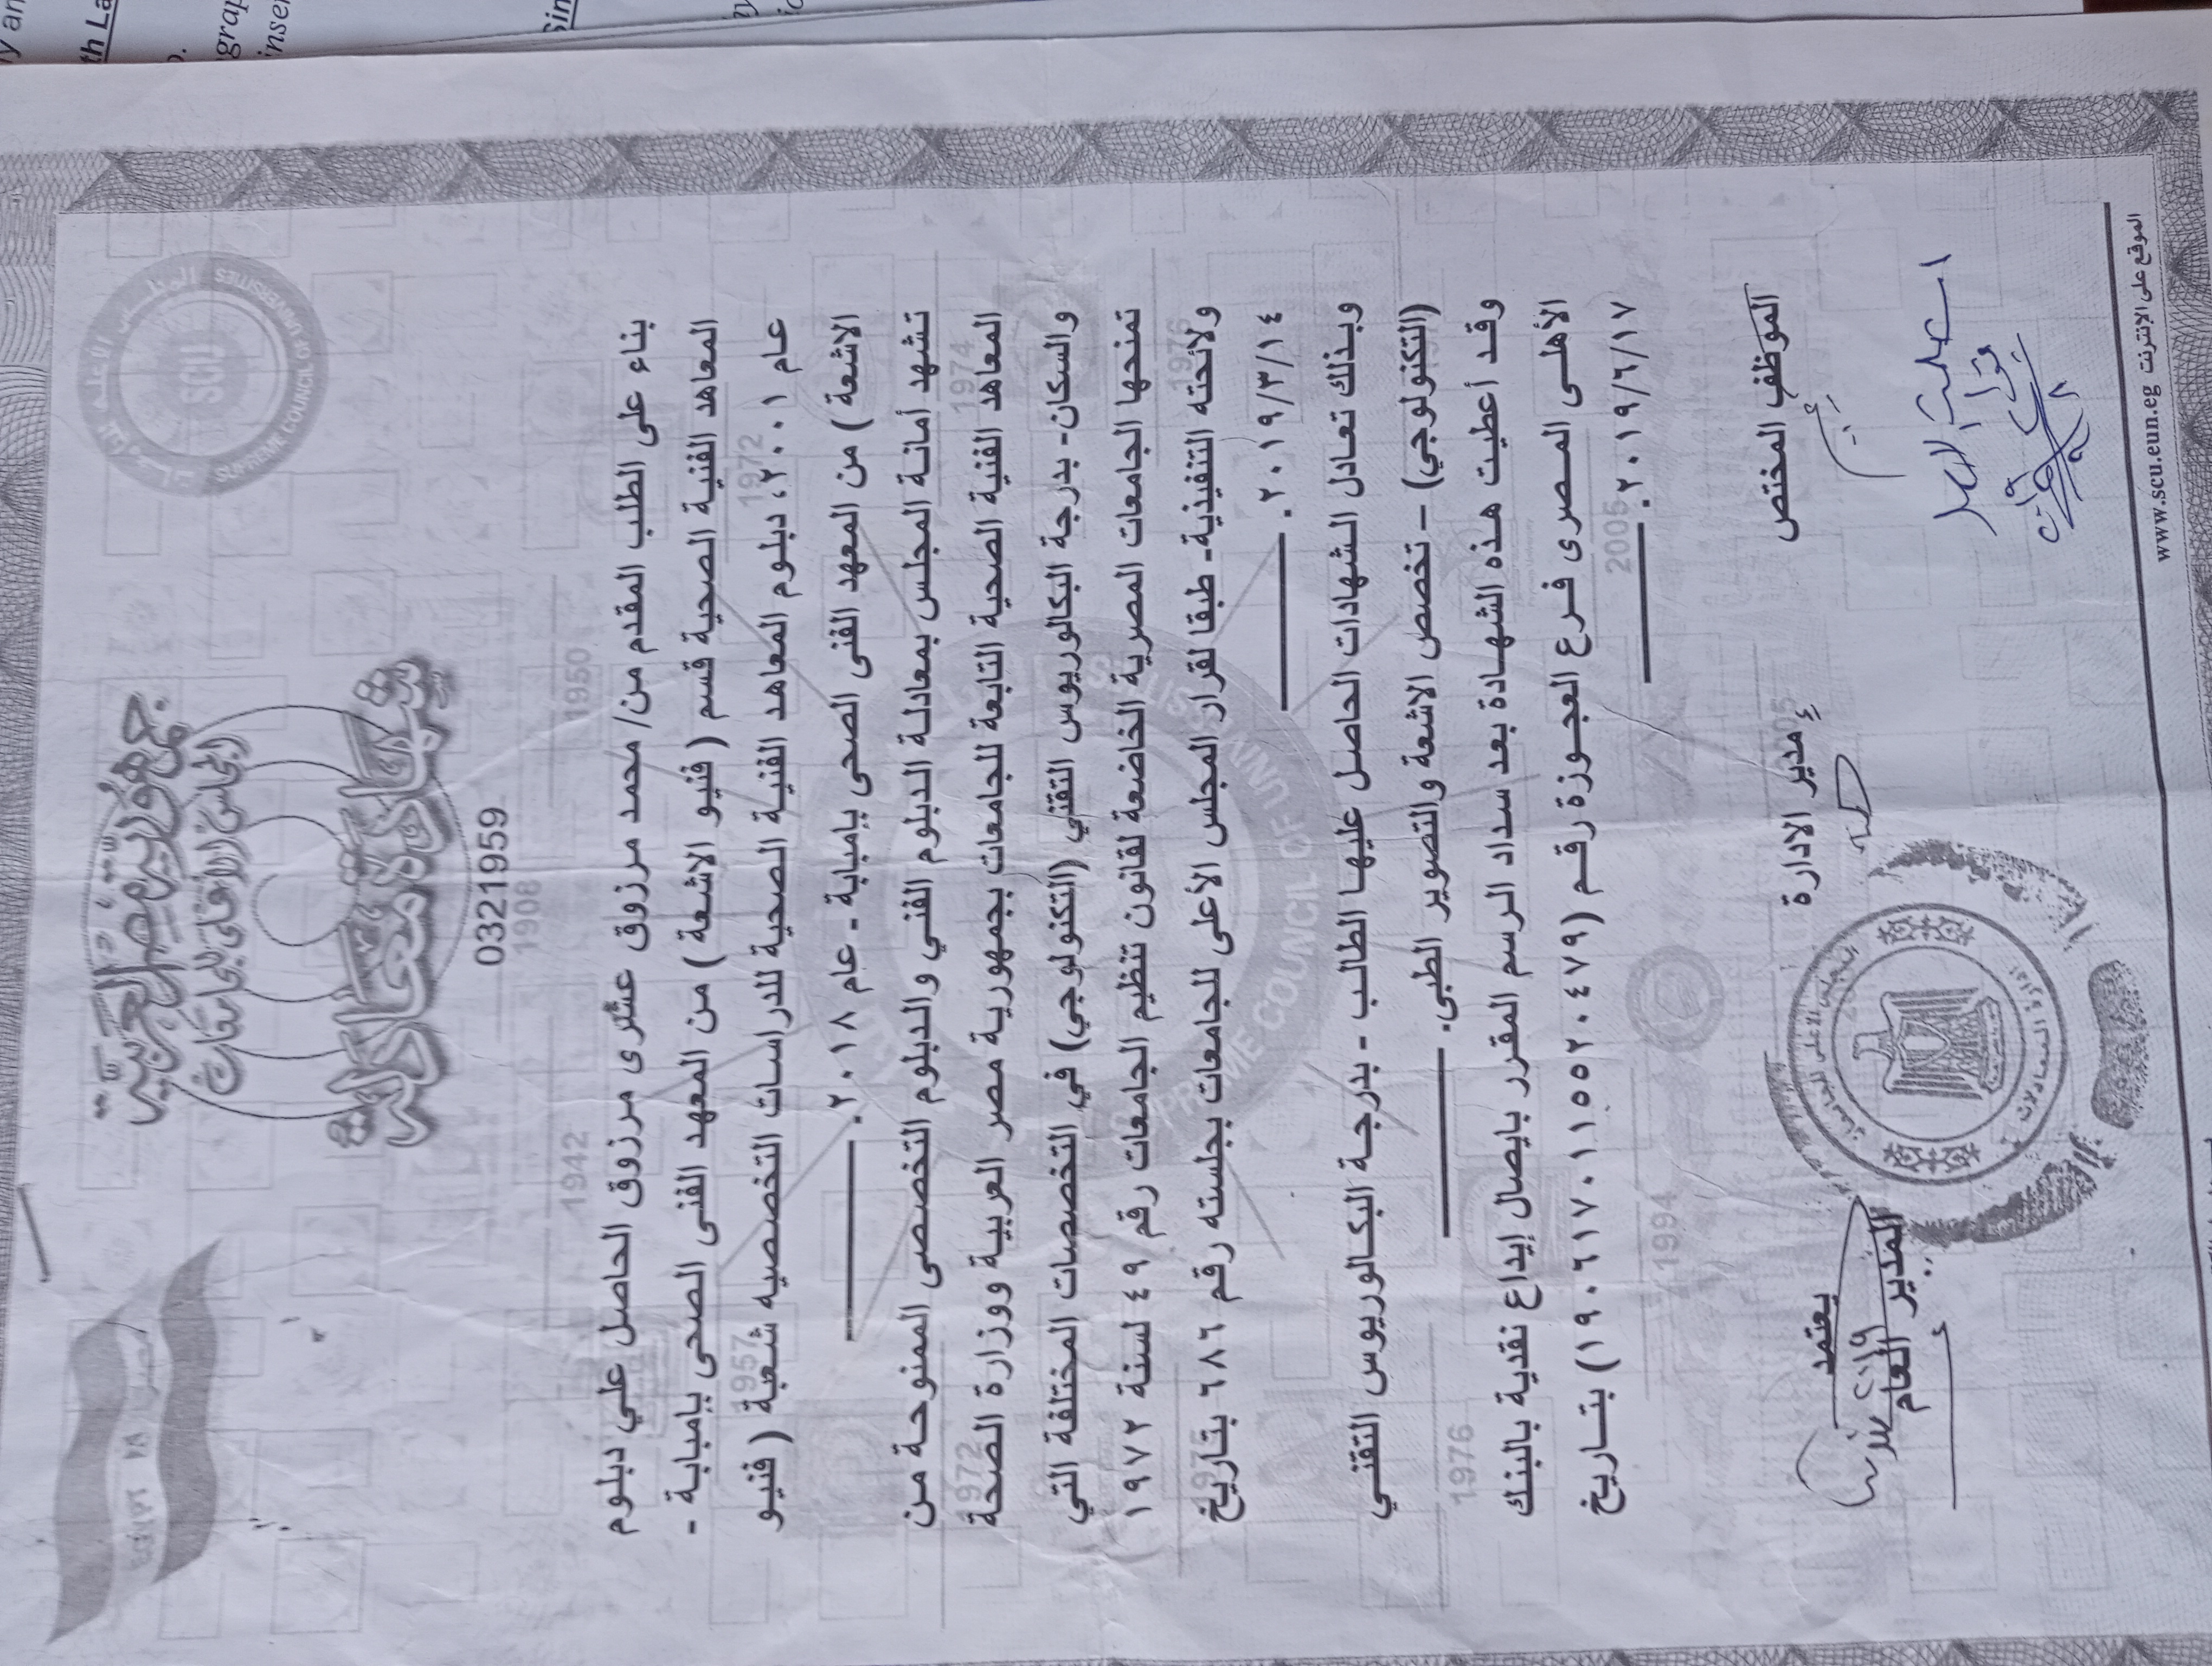 جمهورية مصر العربية
المجلس الأعلى للجامعات
شهادة معادلة
SCU
SUPREME COUNCIL OF UNIVERSITIES
0321959
بناء على الطلب المقدم من/ محمد مرزوق عشرى مرزوق الحاصل علي دبلوم
المعاهد الفنية الصحية قسم ( فنيو الاشعة ) من المعهد الفنى الصحى بإمبابة -
عام ٢٠٠١، دبلوم المعاهد الفنية الصحية للدراسات التخصصيه شعبة ( فنيو
الاشعة ) من المعهد الفنى الصحى بإمبابة - عام ٢٠١٨.
تشهد أمانة المجلس بمعادلة الدبلوم الفني والدبلوم التخصصى الممنوحة من
المعاهد الفنية الصحية التابعة للجامعات بجمهورية مصر العربية ووزارة الصحة
والسكان- بدرجة البكالوريوس التقني (التكنولوجي) في التخصصات المختلفة التي
تمنحها الجامعات المصرية الخاضعة لقانون تنظيم الجامعات رقم ٤٩ لسنة ١٩٧٢
ولائحته التنفيذية- طبقا لقرار المجلس الأعلى للجامعات بجلسته رقم ٦٨٦ بتاريخ
٢٠١٩/٣/١٤.
وبذلك تعادل الشهادات الحاصل عليها الطالب - بدرجة البكالوريوس التقني
(التكنولوجي) – تخصص الاشعة والتصوير الطبي.
وقد أعطيت هذه الشهادة بعد سداد الرسم المقرر بايصال إيداع نقدية بالبنك
الأهلى المصرى فرع العجوزة رقم (١٩٠٦١٧٠١١٥٥٢٠٤٧٩) بتاريخ
٢٠١٩/٦/١٧.
الموظف المختص
مدير الادارة
يعتمد
المدير العام
المجلس الأعلى للجامعات
ادارة المعادلات
استلمت الأصل
الموقع على الإنترنت www.scu.eun.eg
1908
1942
1950
1957
1972
1972
1974
1975
1976
1976
1994
2005